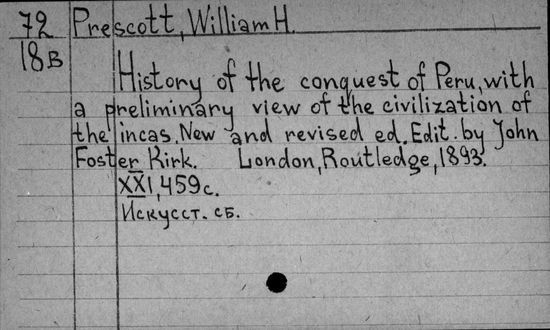 72 Prescott, William H.
18 B
History of the conquest of Peru, with
a preliminary view of the civilization of
the incas. New and revised ed. Edit. by John
Foster Kirk. London, Routledge, 1893.
XXI, 459 c.
Искусст. сб.